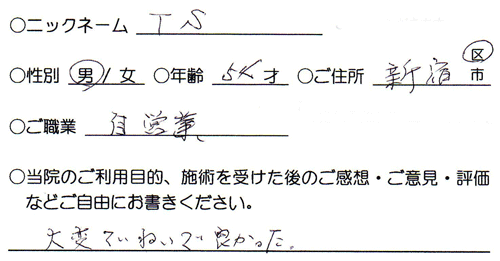 ○ニックネーム TS
○性別 男/女 ○年齢 5 才 ○ご住所 新宿 区 市
○ご職業 自営業
○当院のご利用目的、施術を受けた後のご感想・ご意見・評価
などご自由にお書きください。
大変ていねいで良かった。